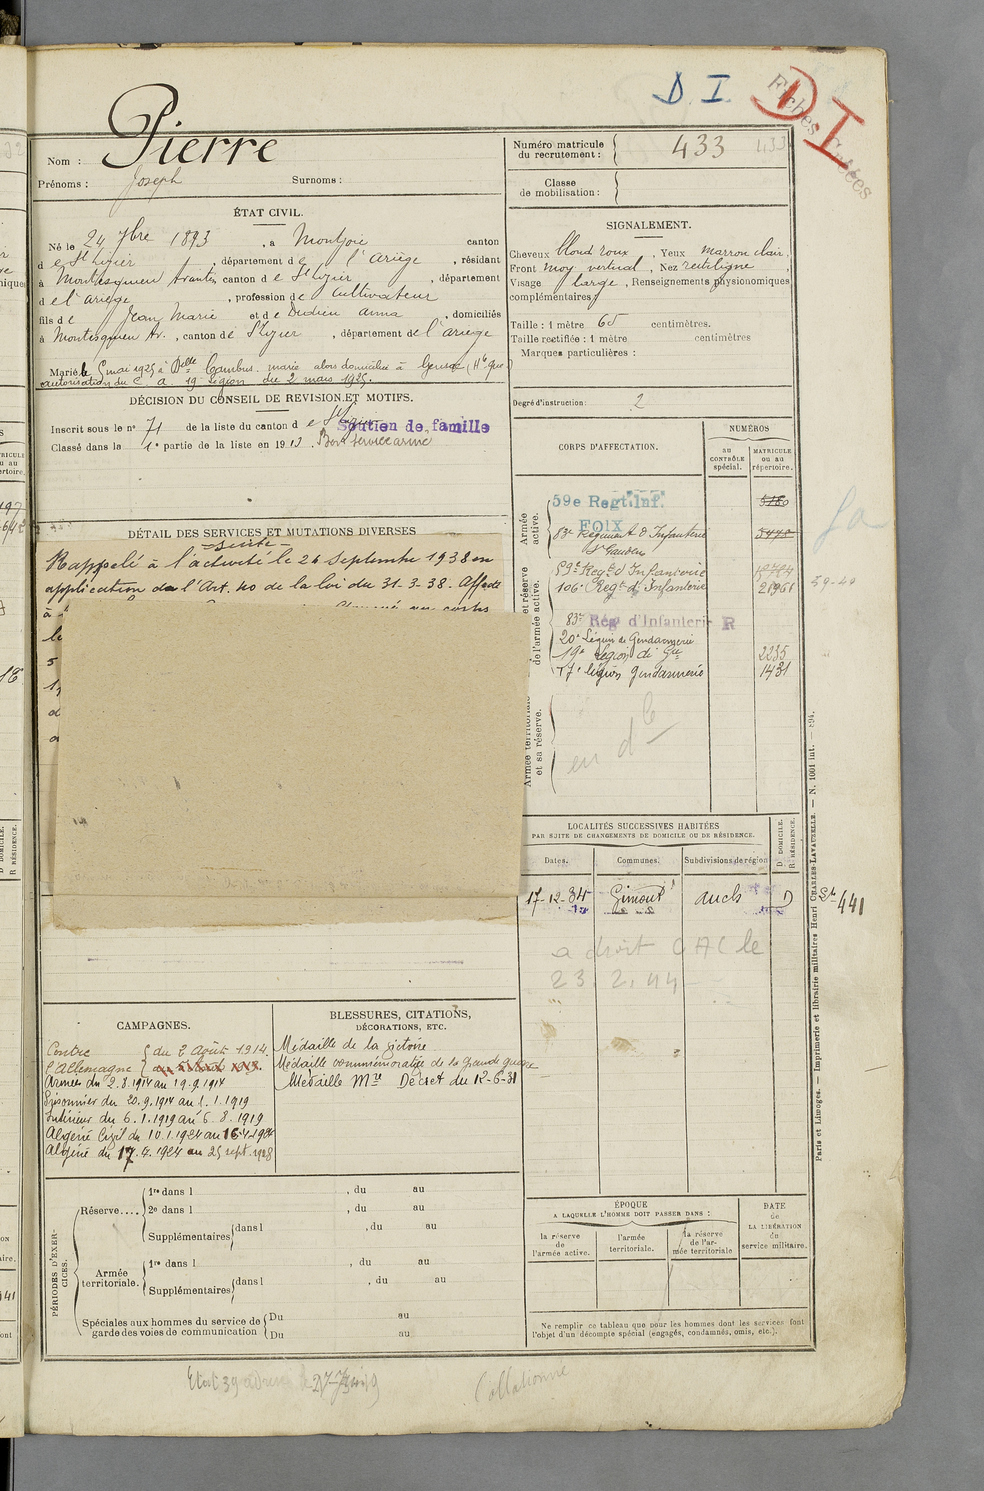 D. I.
D. I
Fiches
Nom : Pierre
Prénoms : Joseph Surnoms :
Numéro matricule du recrutement : 433 433
Classe de mobilisation :
ÉTAT CIVIL.
Né le 24 7bre 1893, à Montjoie canton
d e St Lizier, département d e l'ariège, résidant
à Montesquieu Avantès canton d e St Lizier, département
d e l'ariège, profession d e cultivateur
fils d e Jean Marie et d e Dedieu anna, domiciliés
à Montesquieu Av., canton d e St Lizier, département d e l'ariège
Marié le 5 mai 1925 à Delle Cambus marie alors domiciliée à
autorisation du C. a. 19 légion du 2 mars 1925.
SIGNALEMENT.
Cheveux blond roux, Yeux marron clair,
Front moy vertical, Nez rectiligne,
Visage large, Renseignements physionomiques
complémentaires
Taille : 1 mètre 65 centimètres.
Taille rectifiée : 1 mètre centimètres
Marques particulières :
Degré d'instruction : 2
DÉCISION DU CONSEIL DE REVISION ET MOTIFS.
Inscrit sous le n° 71 de la liste du canton d e St Lizier
Soutien de famille
Classé dans la 1e partie de la liste en 1913. Bon service armé
DÉTAIL DES SERVICES ET MUTATIONS DIVERSES
- Suite -
Rappelé à l'activité le 26 Septembre 1938 en
application de l'Art. 40 de la loi du 31-3-38. Affecté
à
CORPS D'AFFECTATION.
NUMÉROS
au CONTRÔLE spécial.
MATRICULE ou au répertoire.
Armée active.
59e Regt. Inf. 5180
FOIX
83e Régiment d'Infanterie 5440
St Gaudens
et réserve de l'armée active.
59e Regt d'Infanterie
106e Regt d'Infanterie 21961
83e Rég d'Infanterie R
20e Légion de Gendarmerie
19e Légion de Gie 2235
17e légion gendarmerie 1431
Armée territoriale et sa réserve.
en dc
59-40
LOCALITÉS SUCCESSIVES HABITÉES
PAR SUITE DE CHANGEMENTS DE DOMICILE OU DE RÉSIDENCE.
Dates. Communes. Subdivisions de région
D DOMICILE. R RÉSIDENCE.
17-12-34 Gimont auch D
441
a droit CAC le
23.2.44
CAMPAGNES.
Contre l'Allemagne { du 2 Août 1914.
Armées du 2.8.1914 au 19.9.1914
Prisonnier du 20.9.1914 au 1.1.1919
Intérieur du 6.1.1919 au 6.8.1919
Algérie Civil du 10.1.1924 au 16.4.1924
Algérie du 17.4.1924 au 25 sept. 1928
BLESSURES, CITATIONS,
DÉCORATIONS, ETC.
Médaille de la victoire
Médaille commémorative de la grande guerre
Médaille Mre Décret du 12-6-31
PÉRIODES D'EXERCICES.
Réserve.... 1re dans l , du au
2e dans l , du au
Supplémentaires dans l , du au
Armée territoriale. 1re dans l , du au
Supplémentaires dans l , du au
Spéciales aux hommes du service de garde des voies de communication
Du au
Du au
ÉPOQUE
A LAQUELLE L'HOMME DOIT PASSER DANS :
la réserve de l'armée active.
l'armée territoriale.
la réserve de l'armée territoriale
DATE de LA LIBÉRATION du service militaire.
Ne remplir ce tableau que pour les hommes dont les services font
l'objet d'un décompte spécial (engagés, condamnés, omis, etc.).
Paris et Limoges. — Imprimerie et librairie militaires Henri CHARLES-LAVAUZELLE. — N. 1001 int. — 894.
Collationné